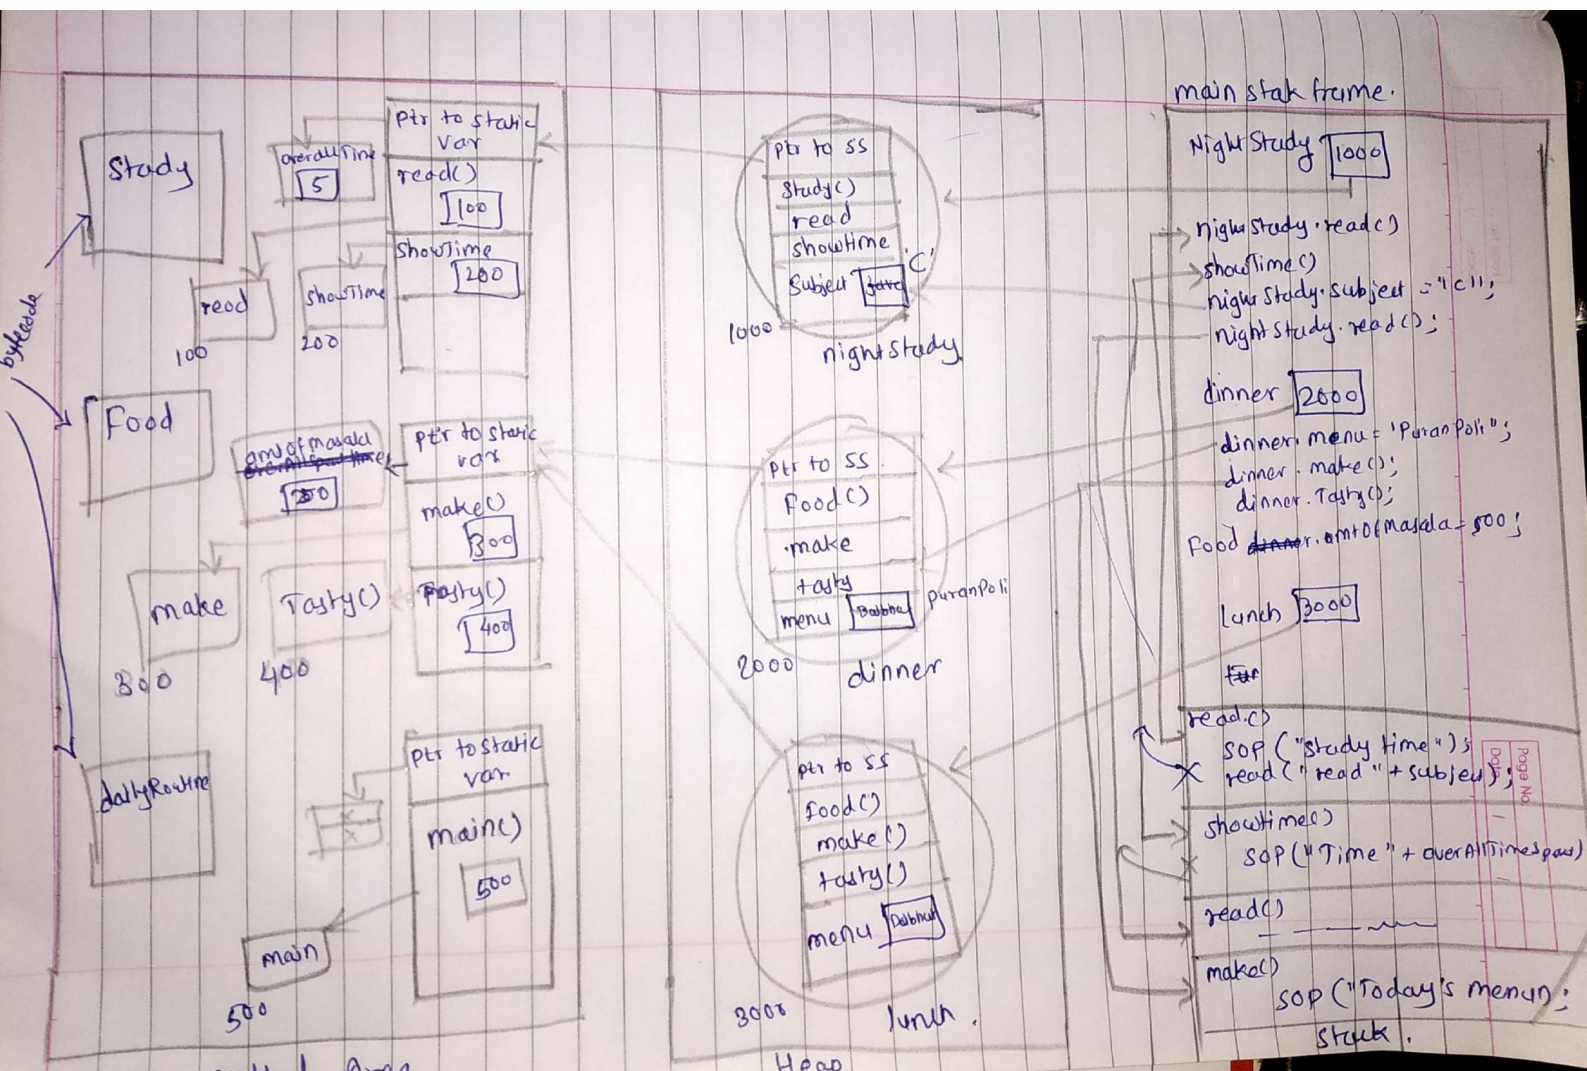 bytecode
Study
overallTime
5
Ptr to static
var
read()
100
showTime
200
read
100
showTime
200
Food
amt of masala
Ptr to static
var
make()
300
Tasty()
400
make
300
Tasty()
400
dailyRoutine
Ptr to static
var
main()
500
main
500
Ptr to SS
Study()
read
showtime
Subject java 'C'
1000
nightStudy
Ptr to SS
Food()
make
tasty
menu PuranPoli
2000
dinner
ptr to SS
food()
make()
tasty()
menu
lunch.
Heap
main stak frame.
Night Study 1000
nightStudy.read()
showTime()
nightStudy.Subject = "C";
nightStudy.read();
dinner 2000
dinner.menu = 'PuranPoli";
dinner.make();
dinner.Tasty();
Food dinner.amtOfmasala = 500;
lunch 3000
read()
SOP ("study time");
read ("read" + subject);
showtime()
SOP ("Time" + overAllTimespent)
read()
make()
SOP ("Today's menu);
stack.
Page No.